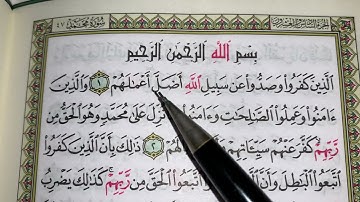 سورة محمد ٤٧
بسم الله الرحمن الرحيم
الذين كفروا وصدوا عن سبيل الله أضل أعملهم ١ والذين
ءامنوا وعملوا الصلحت وءامنوا نزل على محمد وهو الحق من
ربهم كفر عنهم سيئاتهم لهم ٢ ذلك بأن الذين كفروا
اتبعوا البطل وأن اتبعوا الحق من ربهم كذلك يضرب